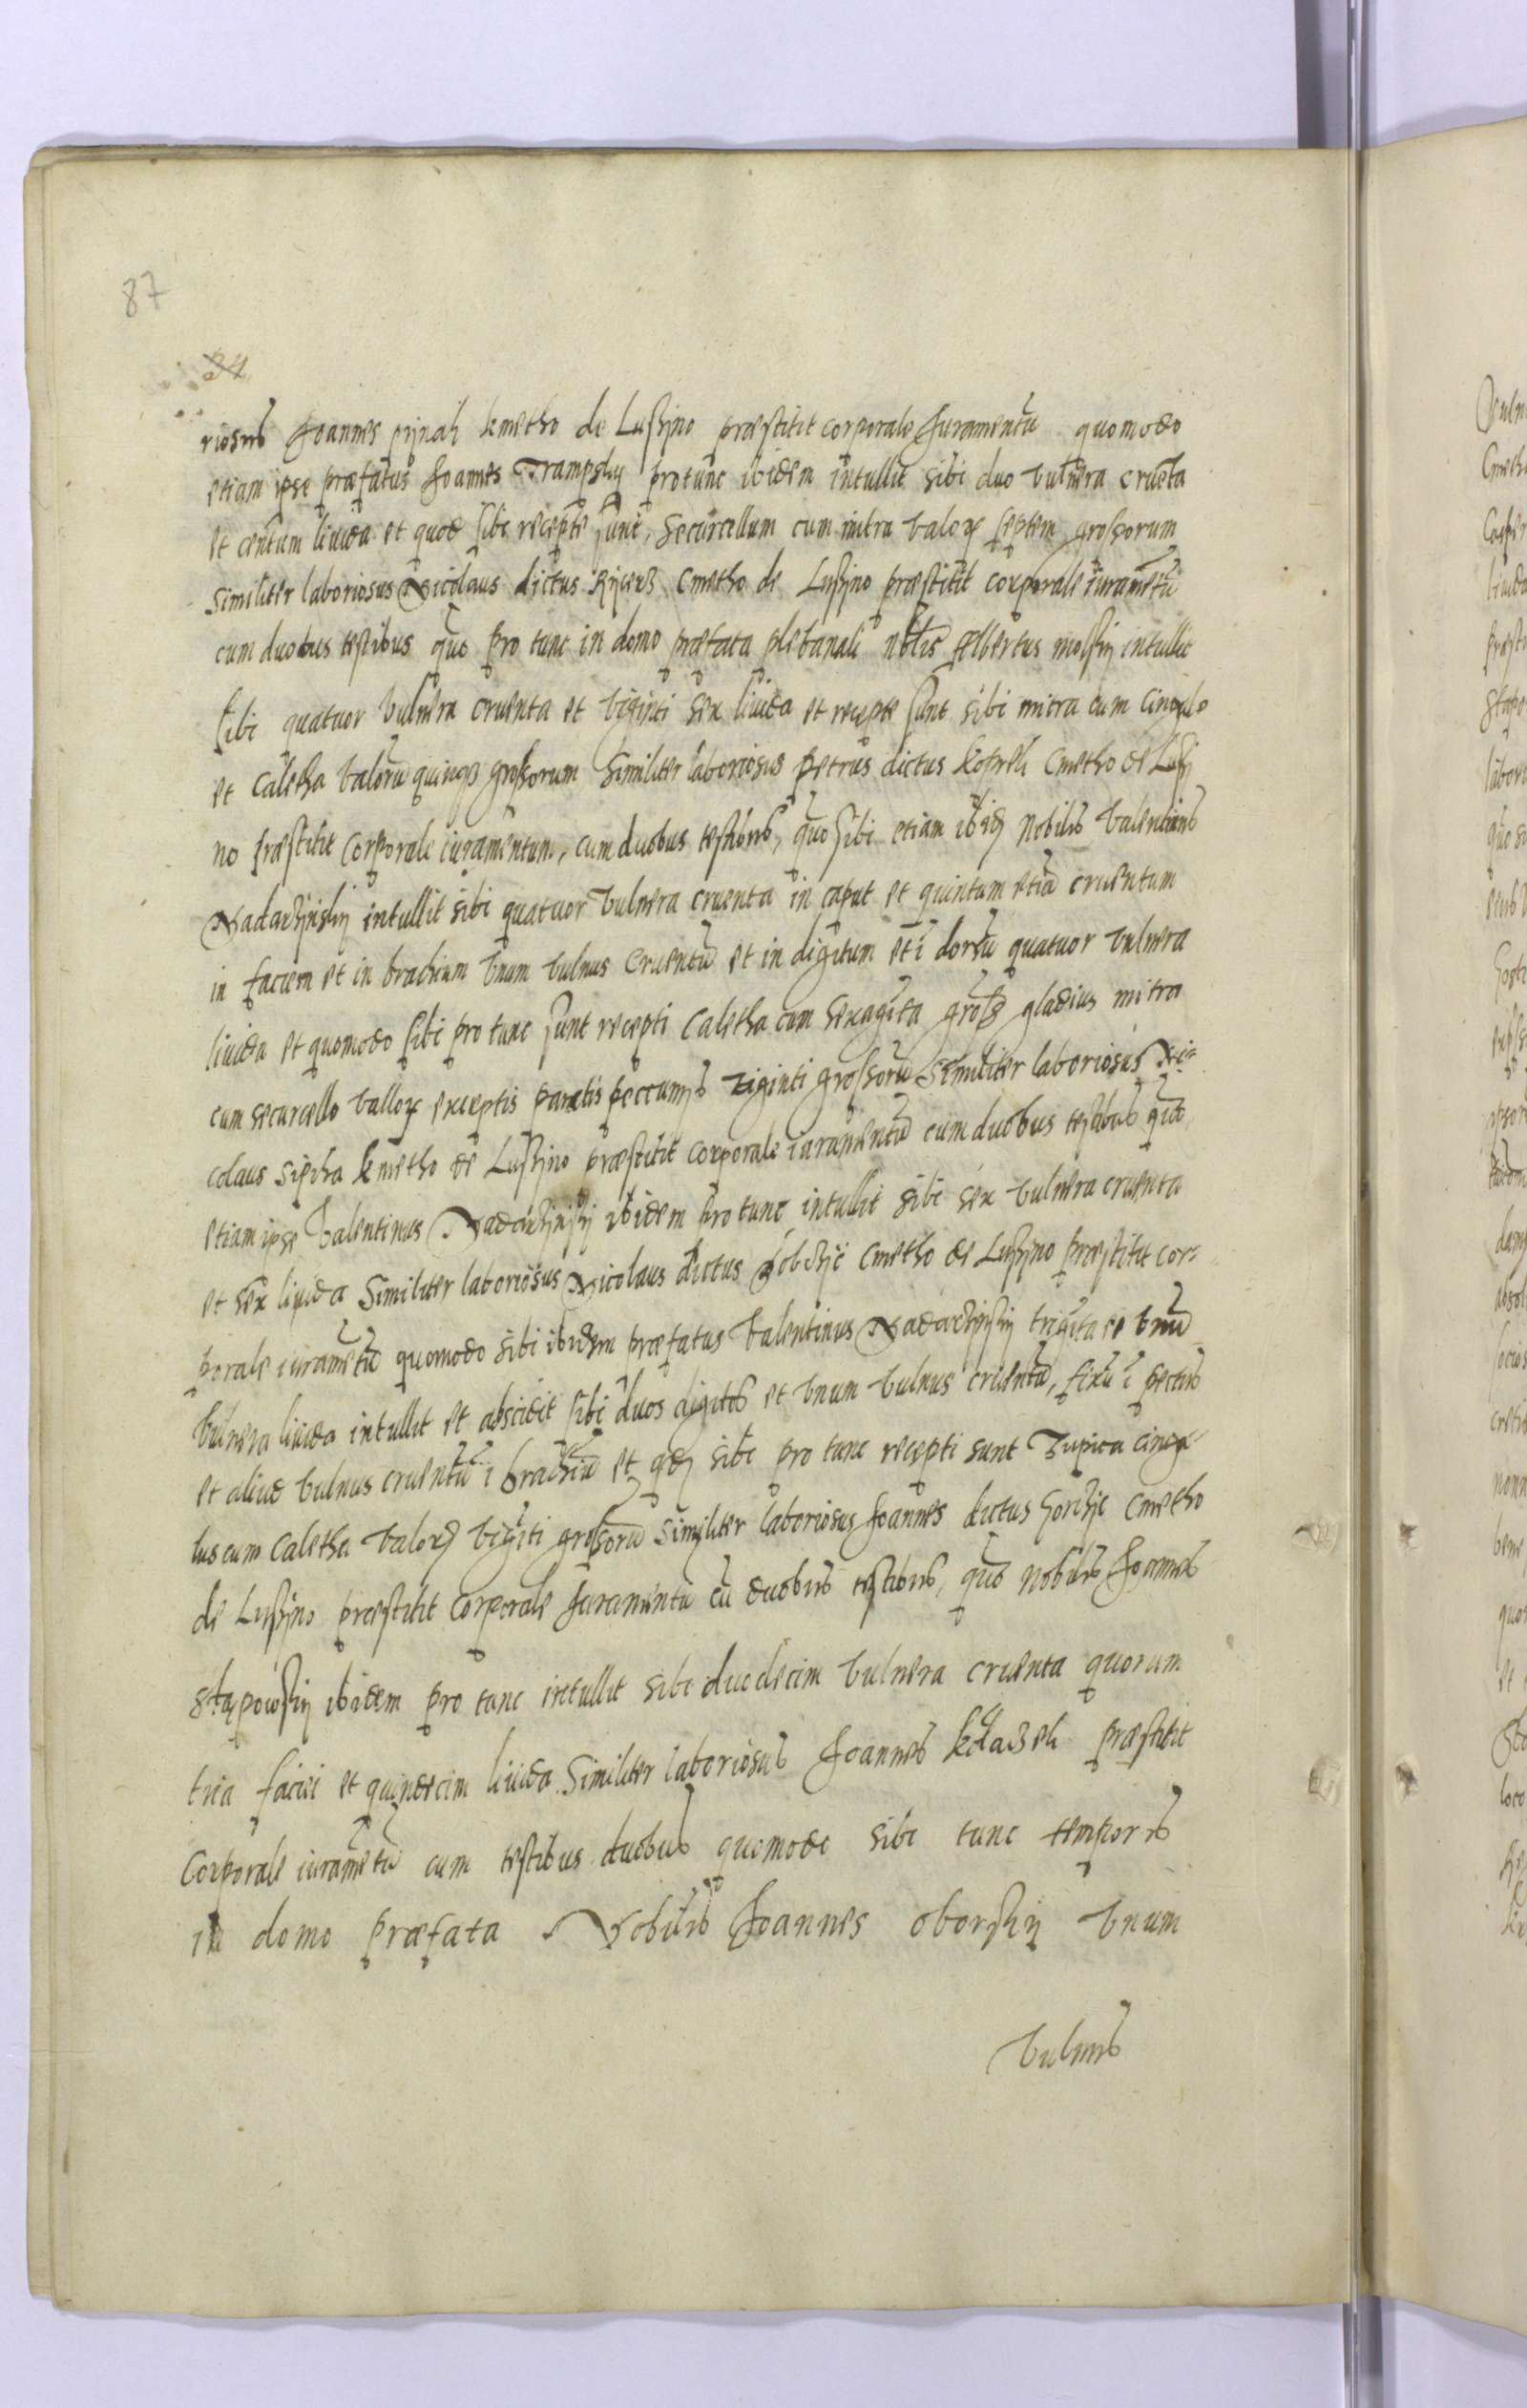 87
24
riosus Joannes pijnaħ kmetho de Lussijno præstitit corporale Juramentũ quomodo
etiam ipse præfatus Joannes Trampsky protunc ibidem intullit sibi duo vulnera cruēta
et centum liuida et quod sibi recepte sunt, securcellum cum mitra valoꝝ septem grossorum
Similiter laboriosus Nicolaus dictus Rijcerz Cmetho de Lussijno præstitit corporale iuramētũ
cum duobus testibus quo pro tunc in domo præfata plebanali nob̃lis Albertus molskij intullit
sibi quatuor vulnera cruenta et viginti sex liuida et recepte sunt sibi mitra cum cingulo
et Caletha valorũ quinqȝ grossorum Similiter laboriosus petrus dictus kopreħ Cmetho de Lussi
no præstitit Corporale iuramentum, cum duobus testibus, quo sibi etiam ibidȝ Nobilis Valentinus
Nadarzijnskij intullit sibi quatuor vulnera cruenta in caput et quintum etiã cruentum
in faciem et in brachium vnum vulnus cruentũ et in digitum et ĩ dorsũ quatuor vulnera
liuida et quomodo sibi pro tunc sunt recepti Caletha cum sexagīta gross gladius mitra
cum securcello valloꝝ exceptis paratis peccunijs viginti grossorũ Similiter laboriosus Ni-
colaus Sipiha kmetho de Lussijno præstitit corporale iuramentũ cum duobus testibus quo
etiam ipse Valentinus Nadarzijnskij ibidem pro tunc intullit sibi sex vulnera cruenta
et sex liuida Similiter laboriosus Nicolaus dictus Cmetho de Lussijno præstitit cor-
porale iuramētũ quomodo sibi ibidem præfatus Valentinus Nadarzijnskij trigīta et vnũ
vulnera liuida intullit et abscidit sibi duos digitos et vnum vulnus cruentũ, fixũ ĩ pectus
et aliud vulnus cruentũ ĩ brachiũ et qđȝ sibi pro tunc recepti sunt Zupica cingu-
lus cum Caletha valoꝝ vigīti grossorũ Similiter laboriosus Joannes dictus Gorczijc Cmetho
de Lussijno præstitit Corporale Juramentũ cũ duobus testibus, quo Nobilis Joannes
Stąpowskij ibidem pro tunc intullit sibi duodecim vulnera cruenta quorum
tria faciei et quindecim liuida Similiter laboriosus Joannes præstitit
Corporale iuramētũ cum testibus duobus quomodo sibi tunc temporis
in domo præfata Nobilis Joannes oborskij vnum
vulnus